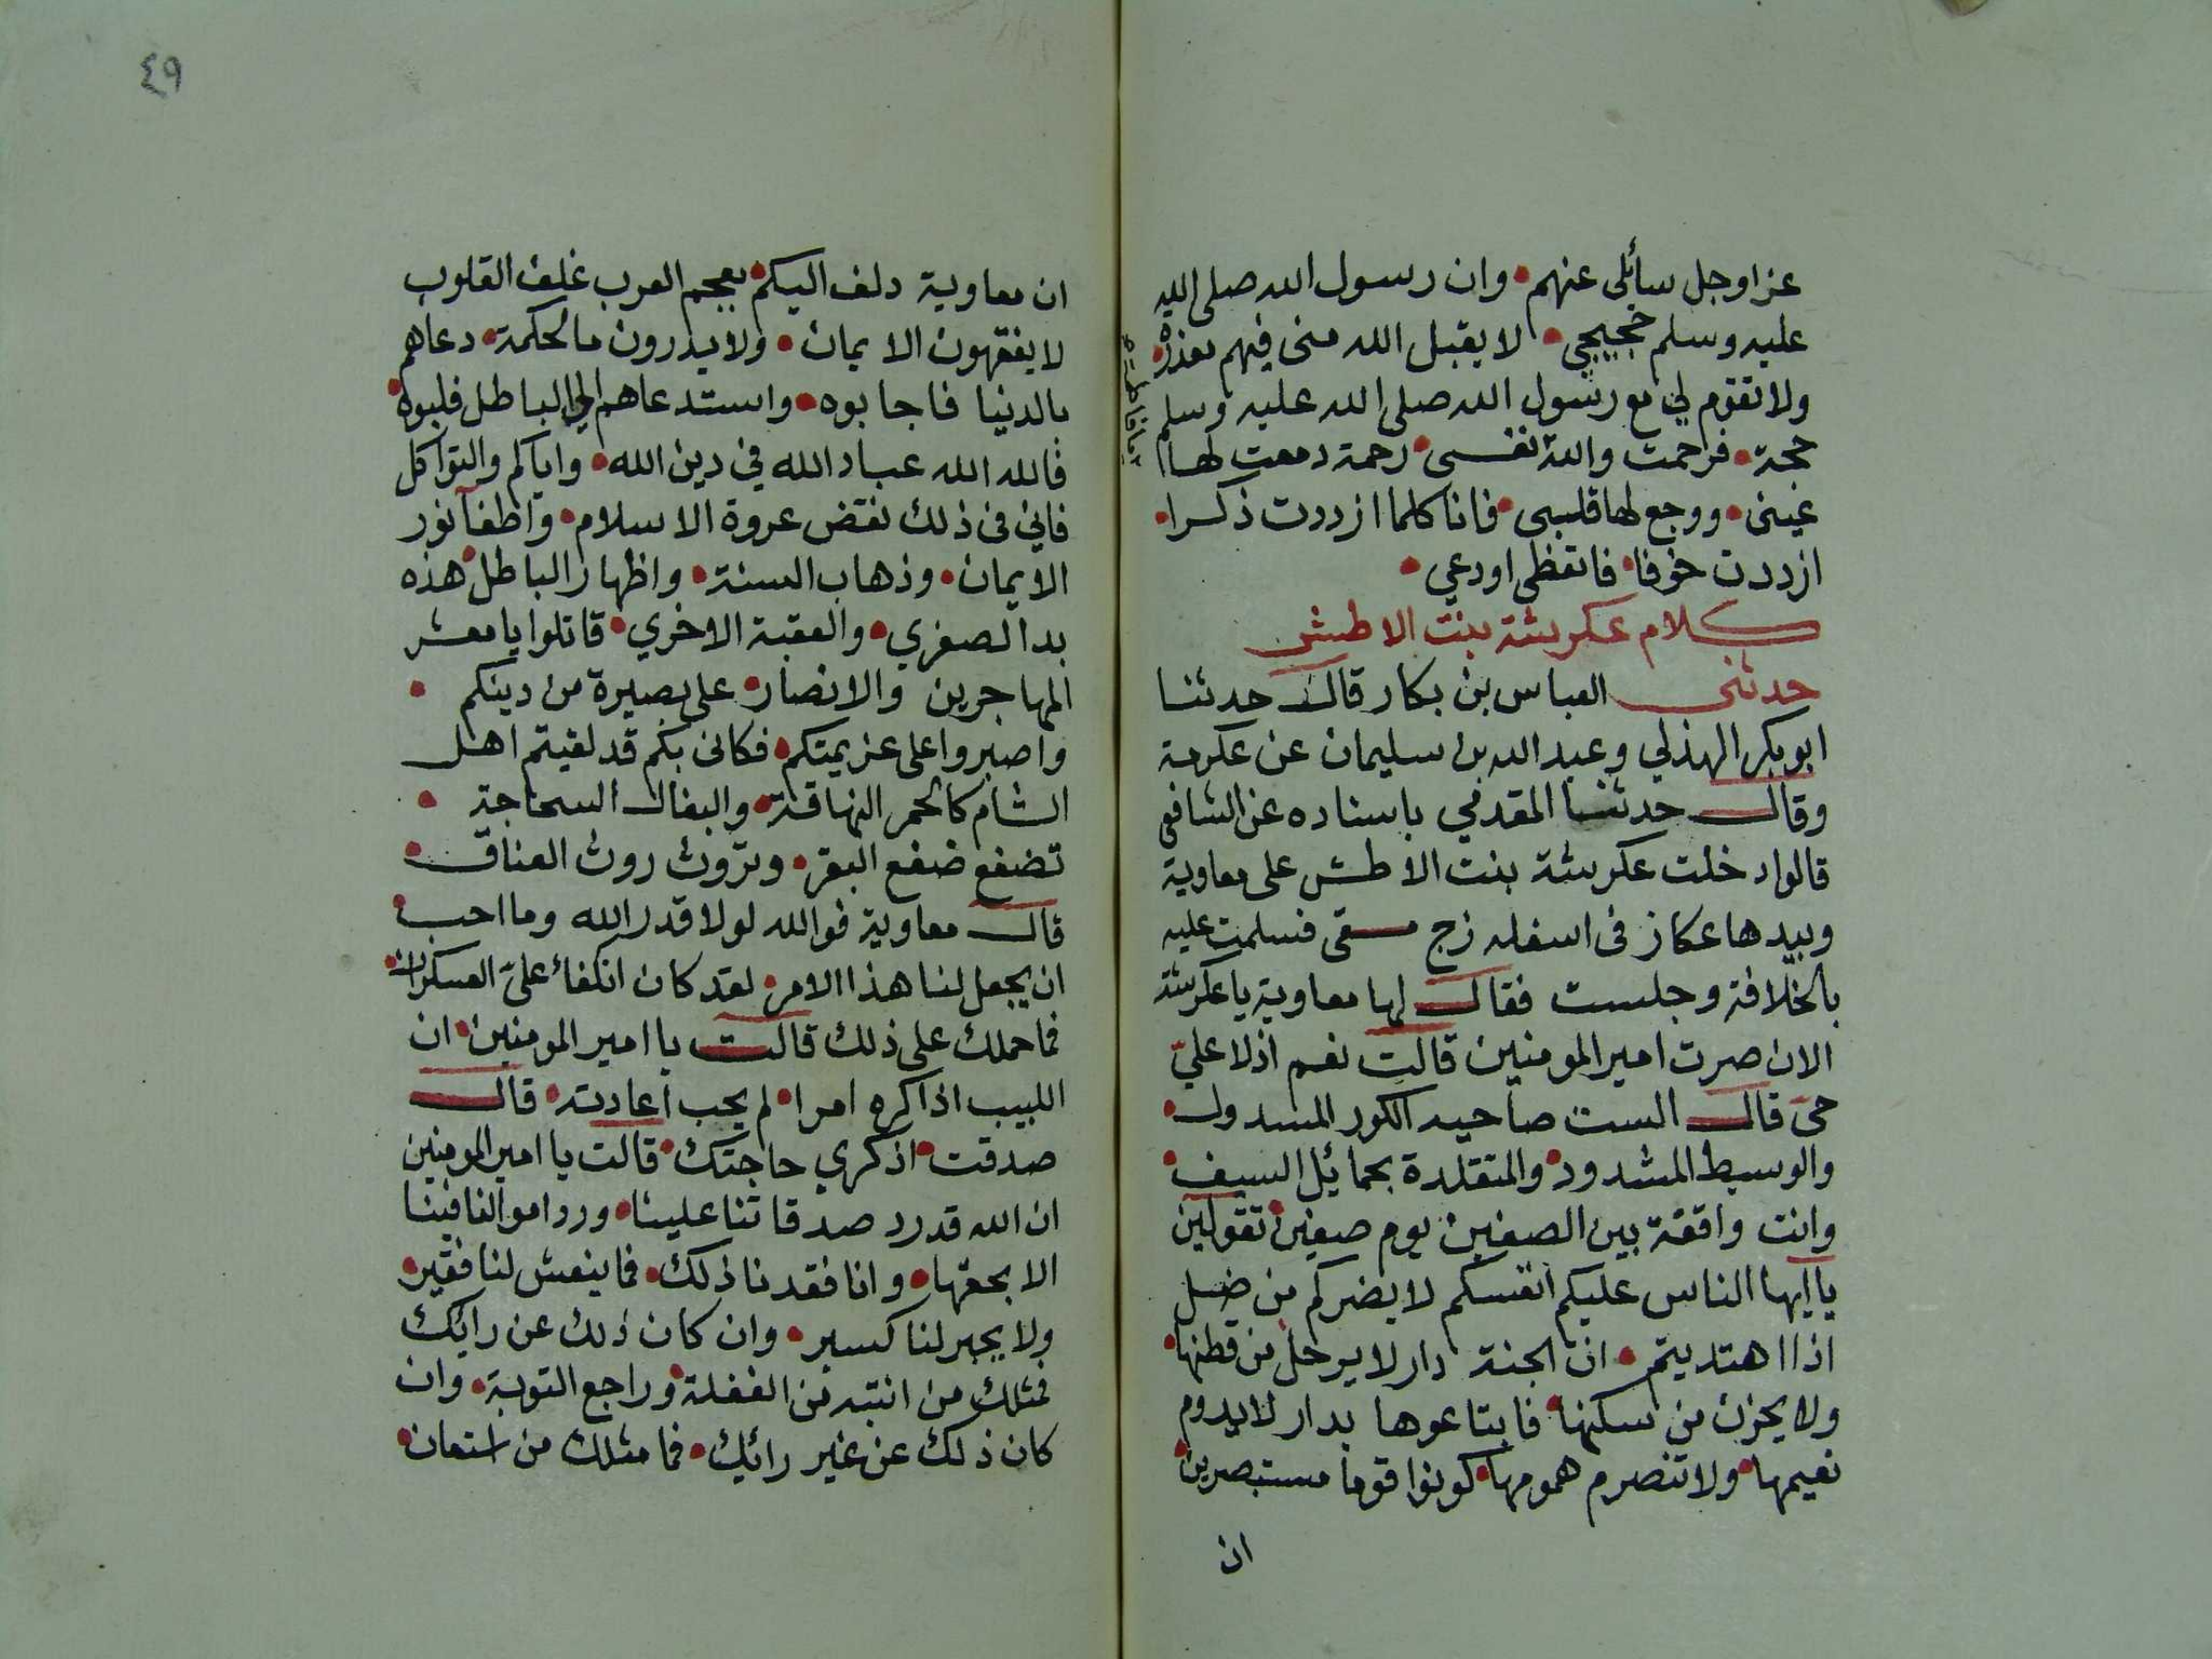 عز اوجل سائلى عنهم • وان رسول الله صلى الله
عليه وسلم حجيجي • لا يقبل الله منى فيهم معذرة •
ولا تقوم لي مع رسول الله صلى الله عليه وسلم
حجة • فرحمت والله نفسى • رحمة دمعت لها
عينى • ووجع لها قلبى • فانا كلما ازددت ذكرا •
ازددت خوفا • فاتعظى اودعي •
كلام عكرشة بنت الاطش
حدثنى العباس بن بكار قال حدثنا
ابو بكر الهذلي وعبد الله بن سليمان عن عكرمة
وقال حدثنا المقدمي باسناده عن الشافعى
قالوا دخلت عكرشة بنت الاطش على معاوية
وبيدها عكاز فى اسفله زج مسقى فسلمت عليه
بالخلافة وجلست فقال لها معاوية يا عكرشة
الان صرت امير المومنين قالت نعم اذ لا عليّ
حى قال الست صاحبه الكور المسدول •
والوسيط المشدود • والمتقلدة بحمائل السيف •
وانت واقفة بين الصفين يوم صفين • تقولين
يا ايها الناس عليكم انفسكم لا يضركم من ضل
اذا اهتديتم • ان الجنة دار لا يرحل من قطنها •
ولا يحزن من سكنها • فابتاعوها بدار لا يدوم
نعيمها • ولا تنصرم همومها • كونوا قوما مستبصرين •
ان
٤٩
ان معاوية دلف اليكم • بعجم العرب غلف القلوب
لا يفقهون الايمان • ولا يدرون ما الحكمة • دعاهم
بالدنيا فاجابوه • واستدعاهم الى الباطل فلبوه •
فالله الله عباد الله في دين الله • واياكم والتواكل
فاني فى ذلك نقض عروة الاسلام • واطفآ نور
الايمان • وذهاب السنة • واظهار الباطل • هذه
بدا الصغري • والعقبة الاخري • قاتلوا يا معشر
المهاجرين والانصار • على بصيرة من دينكم •
واصبروا على عزيمتكم • فكانى بكم قد لقيتم اهل
الشام كالحمر النهاقة • والبغال السحاجة •
تضفع ضفع البقر • وتروث روث العتاق •
قال معاوية فوالله لولا قدر الله وما احب •
ان يجعل لنا هذا الامر • لقد كان انكفاء عليّ العسكران •
فما حملك على ذلك قالت يا امير المومنين • ان
اللبيب اذا كره امرا • لم يحب اعادته • قال
صدقت • اذكري حاجتك • قالت يا امير المومنين
ان الله قد رد صدقاتنا علينا • ورد اموالنا فينا
الا بحقها • وانا فقدنا ذلك • فما ينعش لنا فقير •
ولا يجبر لنا كسير • وان كان ذلك عن رائك
فمثلك من انتبه من الغفلة • وراجع التوبة • وان
كان ذلك عن غير رائيك • فما مثلك من استعان •